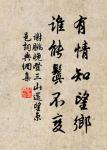 有情知望鄉
誰能鬒不變
謝朓晚登三山還望京
邑詞典網集